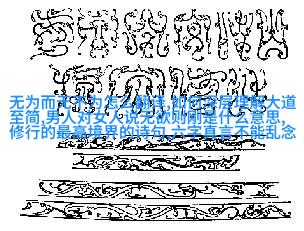 无为而无不为怎么翻译,如何深层理解大道
至简,男人对女人说无欲则刚是什么意思,
修行的最高境界的诗句,六字真言不能乱念